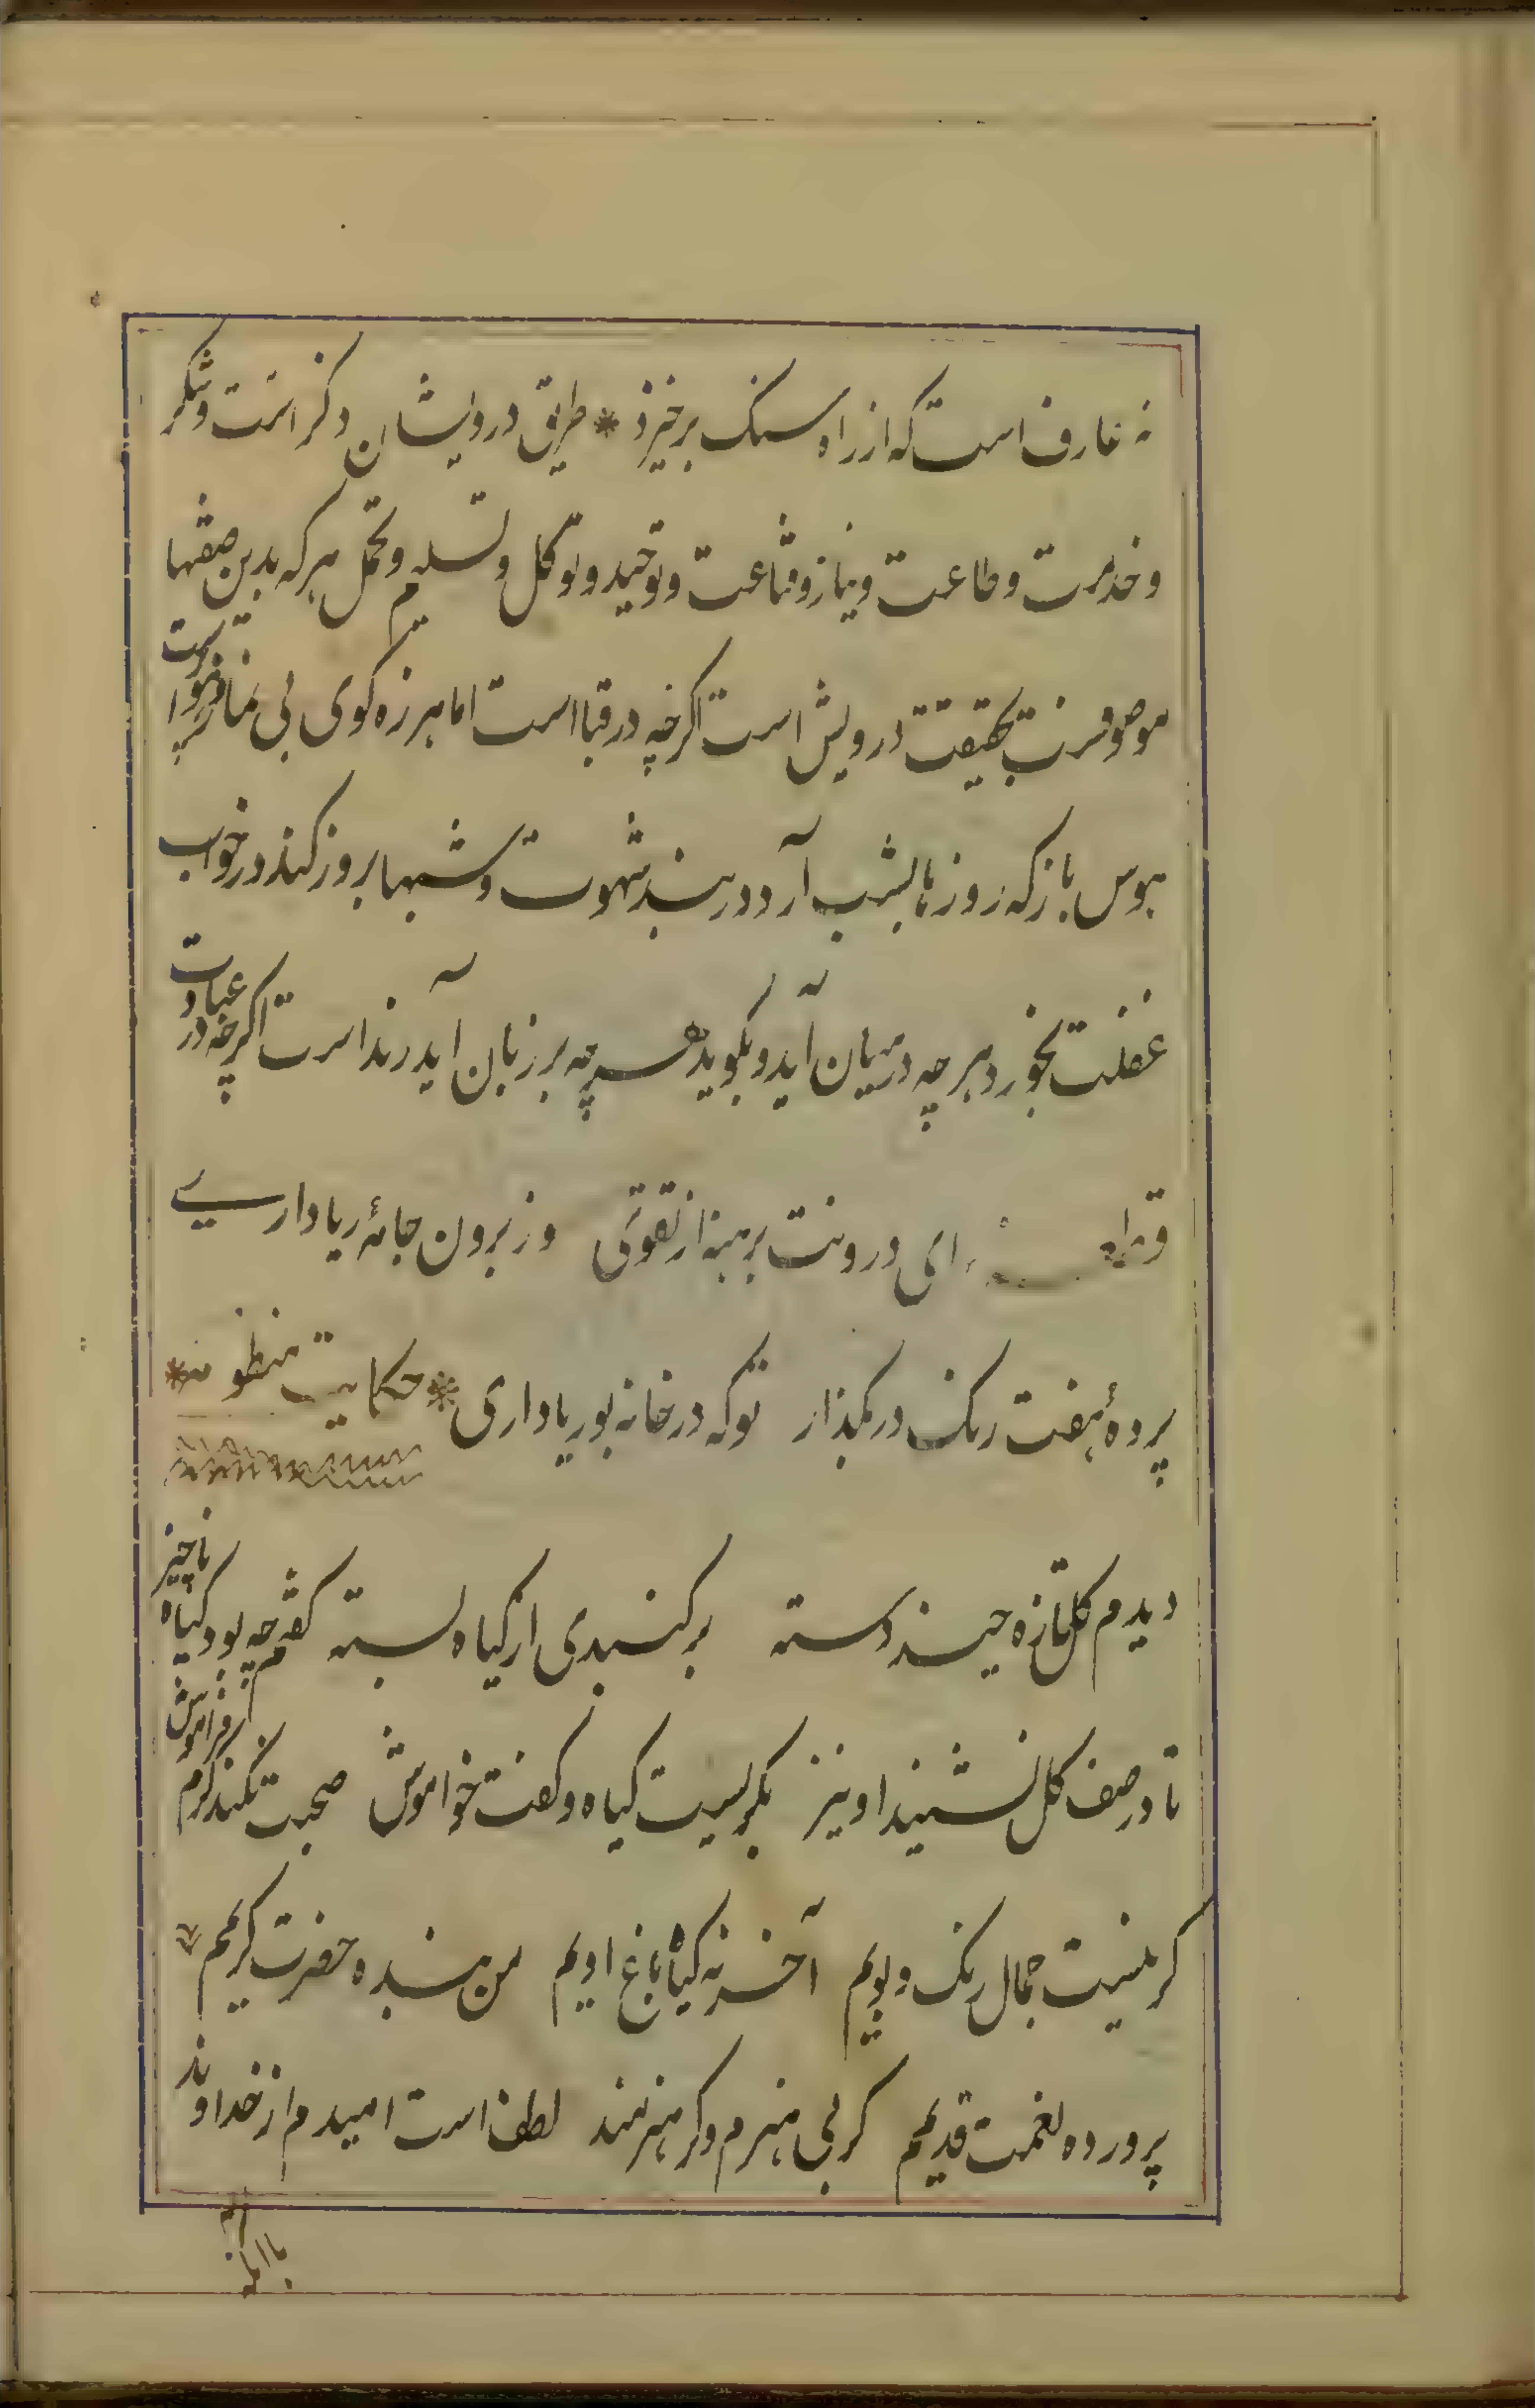 نه عارف است که از راه سنک برخیزد * طریق درویشان ذکر است و شکر
و خدمت و طاعت و نیاز و قناعت و توحید و توکل و تسلیم و تحمل هرکه بدین صفتها
موصوفست بحقیقت درویش است اکرچه در قبا است اما هرزه کوی بی نماز هواپرست
هوس باز که روزها بشب آرد در بند شهوت و شبها بروز کند در خواب
غفلت بخورد هر چه در میان آید و بکوید هر چه بر زبان آید رند است اکرچه در عبادت
قطعه ای درونت برهنه از تقوی وز برون جامۀ ریا داری
پردۀ هفت رنک در مکذار توکه در خانه بوریا داری * حکایت منظومه *
دیدم کل تازه چند دسته بر کنبدی از کیاه بسته کفتم چه بود کیاه ناچیز
تا در صف کل نشیند او نیز بکریست کیاه و کفت خواموش صحبت نکند کرم فراموش
کر نیست جمال رنک و بویم آخر نه کیاه باغ اویم من بنده حضرت کریمم
پرورده نعمت قدیمم کر بی هنرم و کر هنرمند لطف است امیدم از خداوند
با آنکه